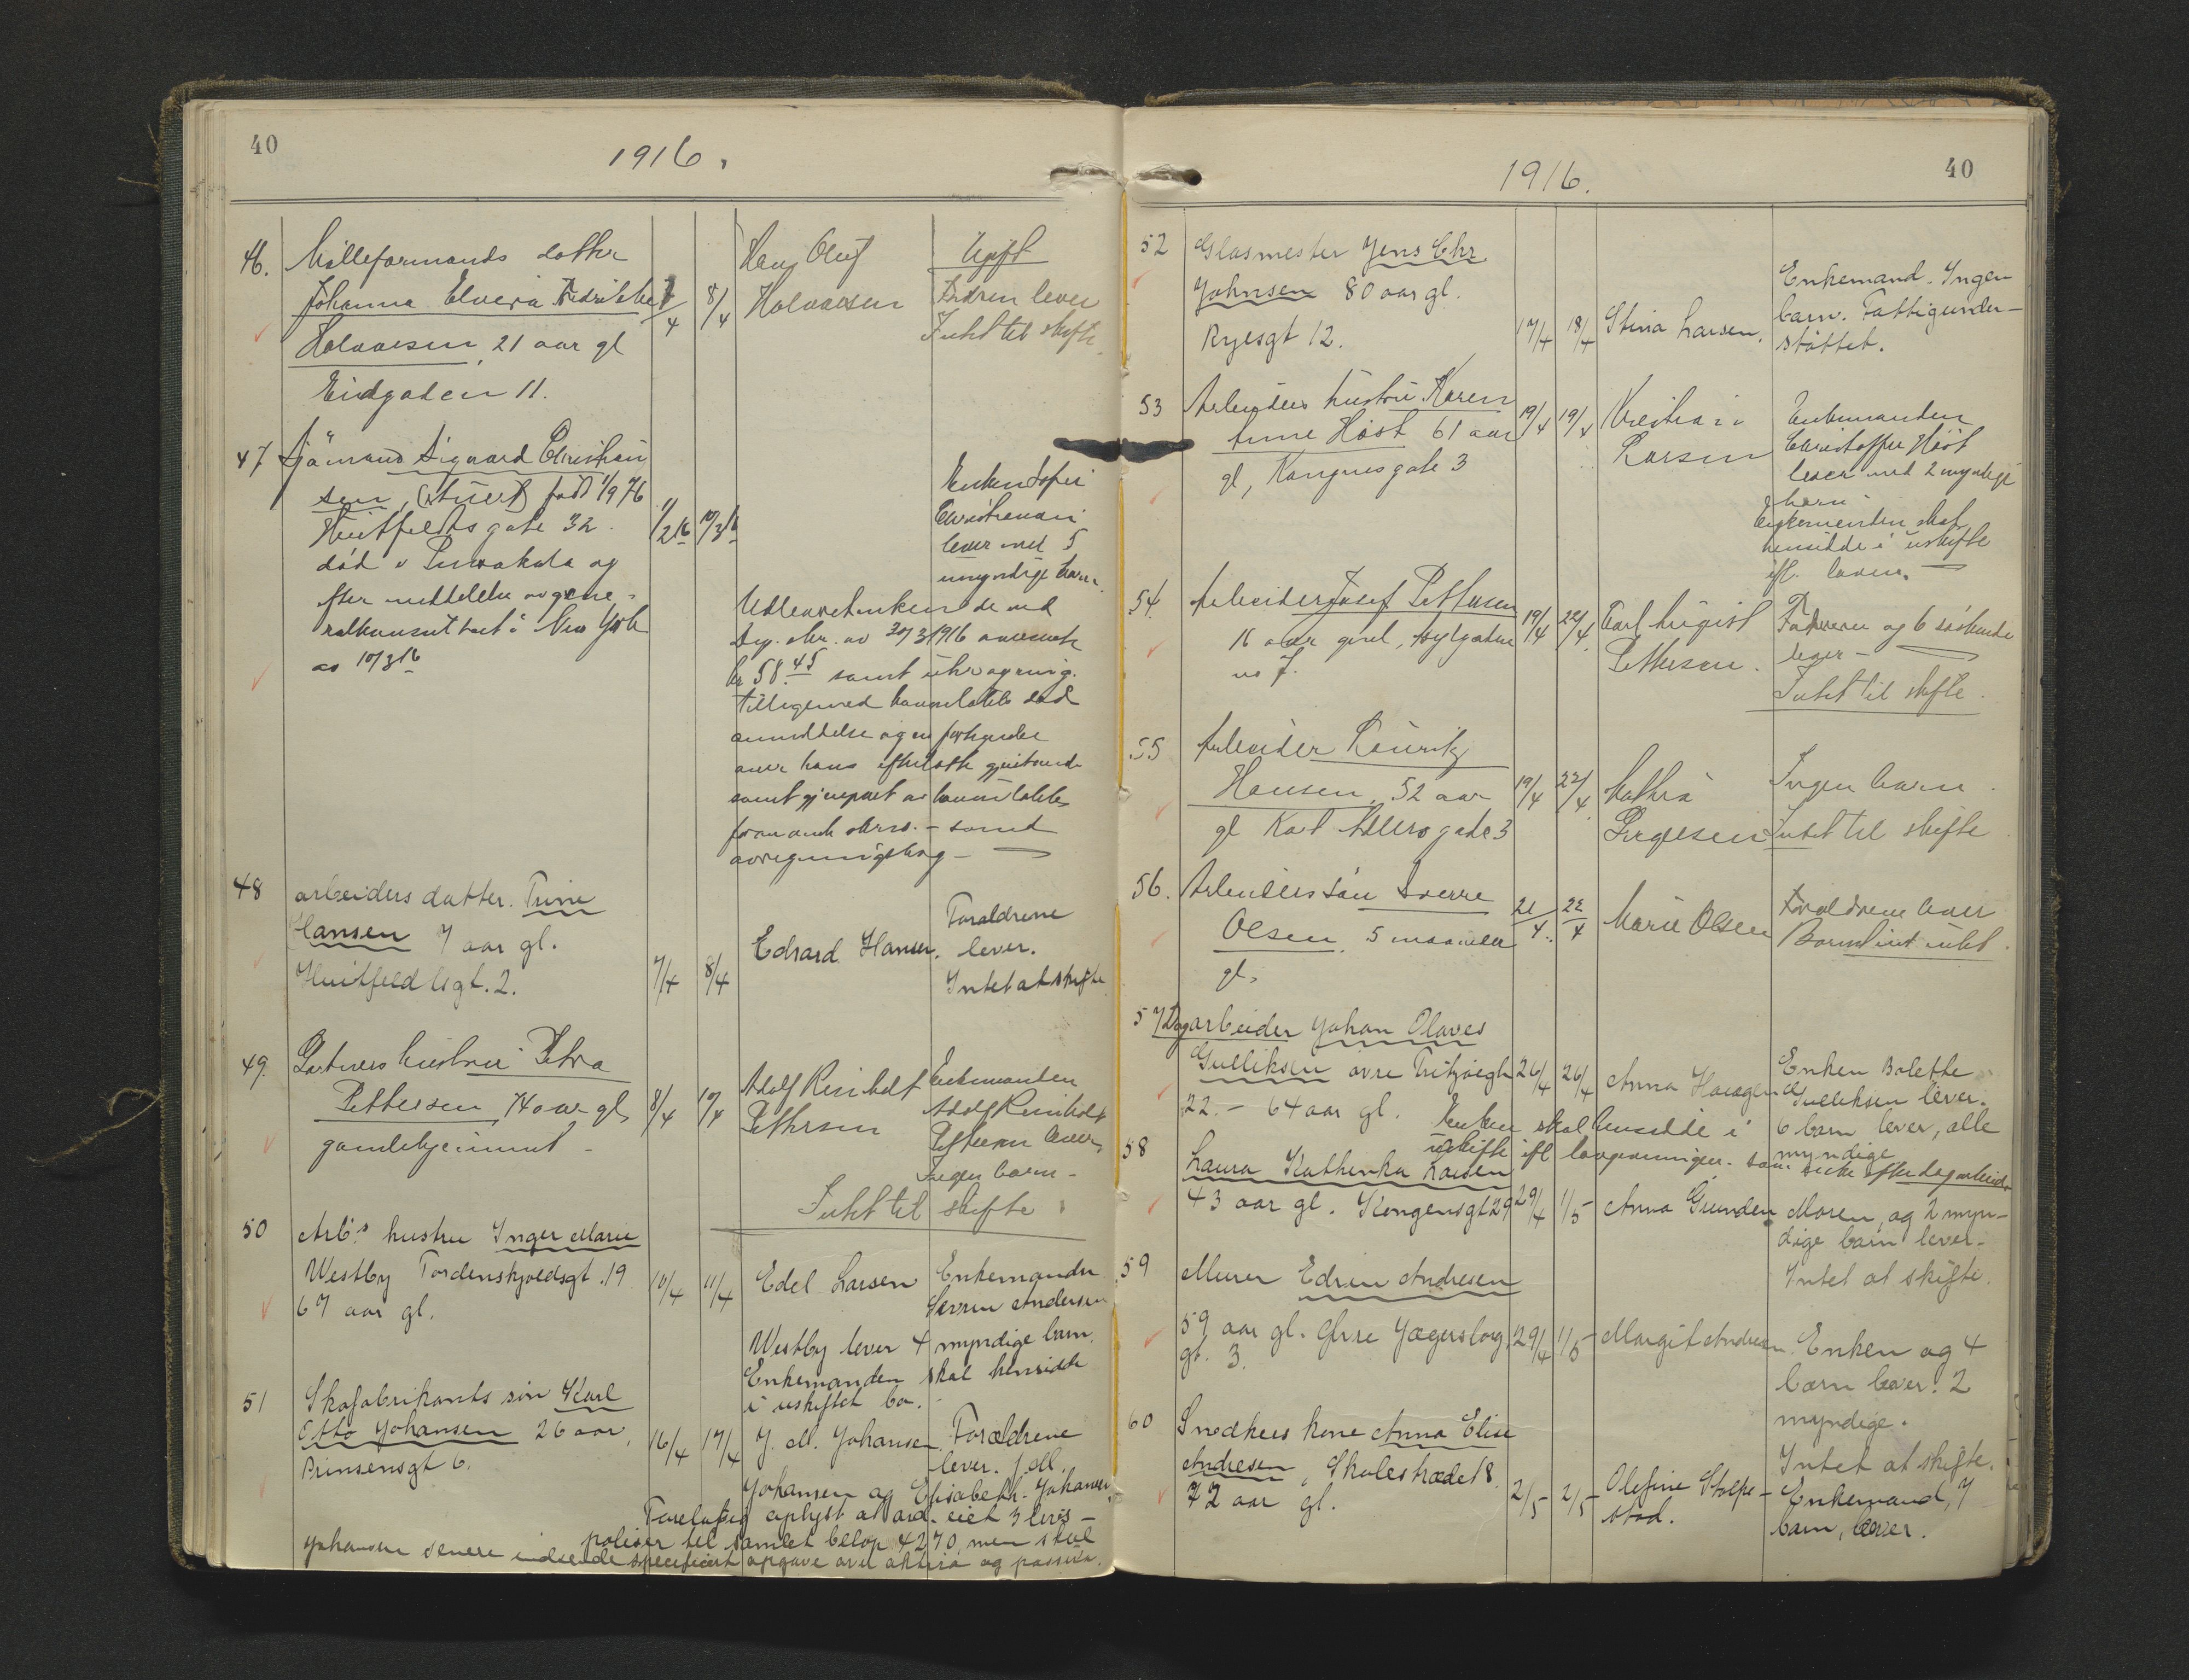 40
1916.
46. Mølleformands datter
Johanna Elvera Fredrikke
Halvorsen, 21 aar gl
Eidgaden 11.
1/4 8/4
Hans Oluf
Halvorsen
Ugift
Faren lever
Intet til skifte.
47 Sjømand Sigvard Christian
sen, (stuert) født 1/9 76
Huitfeldts gate 32.
død i
efter meddelelse av gene-
ralkonsulatet i New York
av 10/3 16
1/2 16 10/3 16
Enken Sofie
Christiansen
lever med 5
umyndige barn.
Utleveret enken de ved
dep. skr. av 30/3 1916 oversendte
kr 58.45 samt uhr og ring.
tilligemed konsulatets død
anmeldelse og en fortegnelse
over hans efterlatte gjenstande
samt gjenpart av konsulatets
skriv. - samt
avregningsbog -
48 arbeiders datter. Trine
Hansen 7 aar gl.
Huitfeldtsgt. 2.
7/4 8/4
Edvard Hansen.
Forældrene
lever.
Intet at skifte
49. Gartners hustru Petra
Pettersen, 74 aar gl,
gamlehjemmet -
8/4 10/4
Adolf Reinholdt
Pettersen
Enkemanden
Adolf Reinholdt
Pettersen lever,
Ingen barn -
Intet til skifte.
50 Arb.s hustru Inger Marie
Westby Tordenskjoldsgt. 19
67 aar gl.
10/4 11/4
Edel Larsen
Enkemanden
Søren Andersen
Westby lever 4 myndige barn.
Enkemanden skal hensidde
i uskiftet bo.
51 Skofabrikants søn Karl
Otto Johansen 26 aar,
Prinsensgt 6.
16/4 17/4
J. M. Johansen.
Forældrene
lever. J. M.
Johansen og Elisabeth Johansen,
Foreløbig oplyst at avd. eiet 3 livs-
poliser til samlet beløp 4270, men skal
Johansen senere indsende specificert opgave over aktiva og passiva.
1916.
40
52 Glasmester Jens Chr
Johnsen 80 aar gl.
Ryesgt 12.
17/4 18/4
Stina Larsen.
Enkemand. Ingen
barn. Fattigunder-
støttet.
53 Arbeiders hustru Karen
Anne Høst 61 aar
gl, Kongensgate 3
19/4 19/4
Kristian
Larsen
Enkemanden
Christoffer Høst
lever med 2 myndige
barn
Enkemanden skal
hensidde i uskifte
ifl. loven.
54. Arbeider Josef Pettersen
16 aar gml,
no 7.
19/4 22/4.
Carl August
Pettersen.
Faderen og 6 søskende
lever -
Intet til skifte.
55 Arbeider Lauritz
Hansen, 52 aar
gl Karl Adlers gade 3
19/4 22/4.
Mathea
Jørgesen
Ingen barn.
Intet til skifte
56. Arbeiders søn Sverre
Olsen, 5 maaneder
gl.
21/4. 22/4
Marie Olsen
Forældrene lever
Barnet eiet intet.
57 Dagarbeider Johan Olaves
Gulliksen øvre Fritzøegt
22. - 64 aar gl.
26/4 26/4
Anna Haugen
Enken Bolette
Gulliksen lever.
6 barn lever, alle
myndige
Enken skal hensidde i
uskifte ifl lovgivningen. som enke efter dagarbeider
58 Laura Kathinka Larsen
43 aar gl. Kongensgt 29
29/4 1/5
Anna Grunden
Moren, og 2 myn-
dige barn lever.
Intet at skifte.
59 Murer Edvin Andresen
59 aar gl. Øvre Jægersborg
gt. 3.
29/4 1/5
Margit Andresen.
Enken og 4
barn lever. 2
myndige.
Intet at skifte.
60 Snedkers kone Anna Elise
Andresen, Skolestrædet 8
72 aar gl.
2/5 2/5
Olefine Stolpe-
stad.
Enkemand, 7
barn, lever.